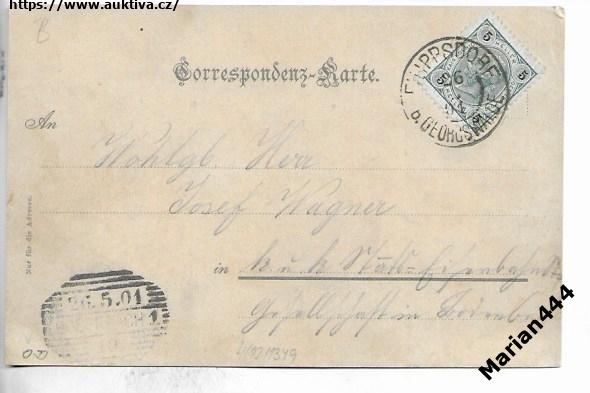 https://www.auktiva.cz/
B
5 HELLER 5
PHILIPPSDORF
26
B. GEORGSWALDE
Correspondenz-Karte.
An
Wohlgb. Herr
Josef Wagner
in k u k Staats-Eisenbahn-
Gesellschaft in Bodenbach
Nur für die Adresse.
26.5.01
Marian444